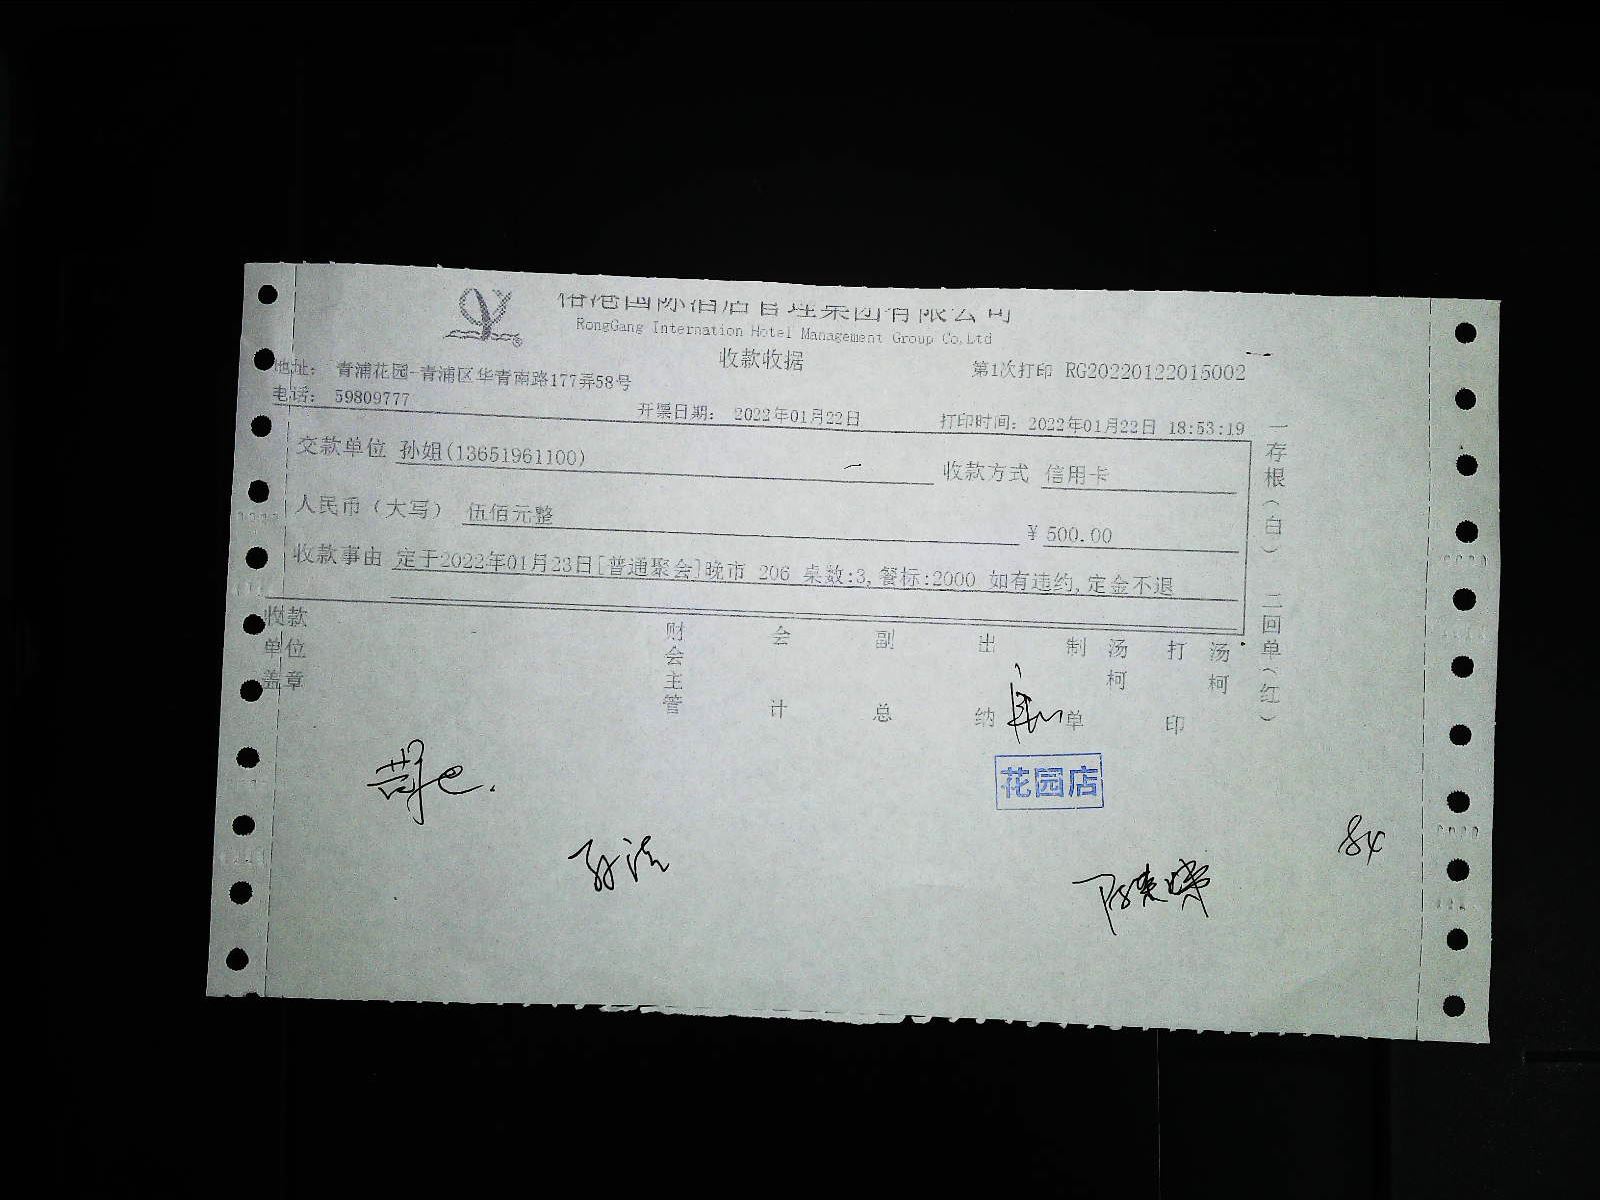 国际酒店管理集团有限公司
RongGang Internation Hotel Management Group Co,Ltd
收款收据
地址： 青浦花园-青浦区华青南路177弄58号
第1次打印 RG20220122015002
电话： 59809777
开票日期： 2022年01月22日
打印时间：2022年01月22日 18:53:19
交款单位 孙姐(13651961100)
收款方式 信用卡
人民币（大写） 伍佰元整
￥500.00
收款事由 定于2022年01月23日[普通聚会]晚市 206 桌数:3,餐标:2000 如有违约,定金不退
一存根（白） 二回单（红）
收款单位盖章
财会主管
会计
副总
出纳
制单 汤柯
打印 汤柯
花园店
84